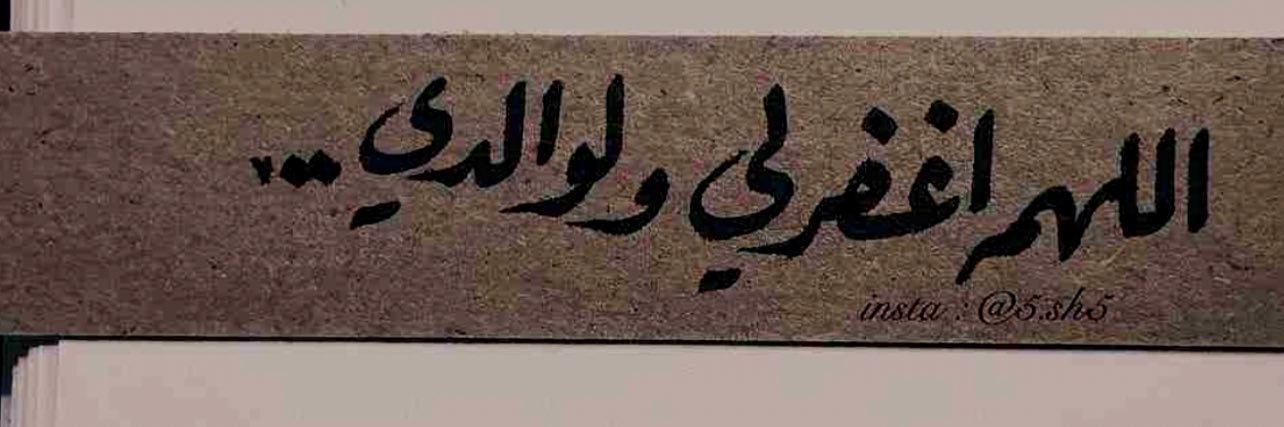 اللهم اغفرلي ولوالدي...
insta : @5.sh5